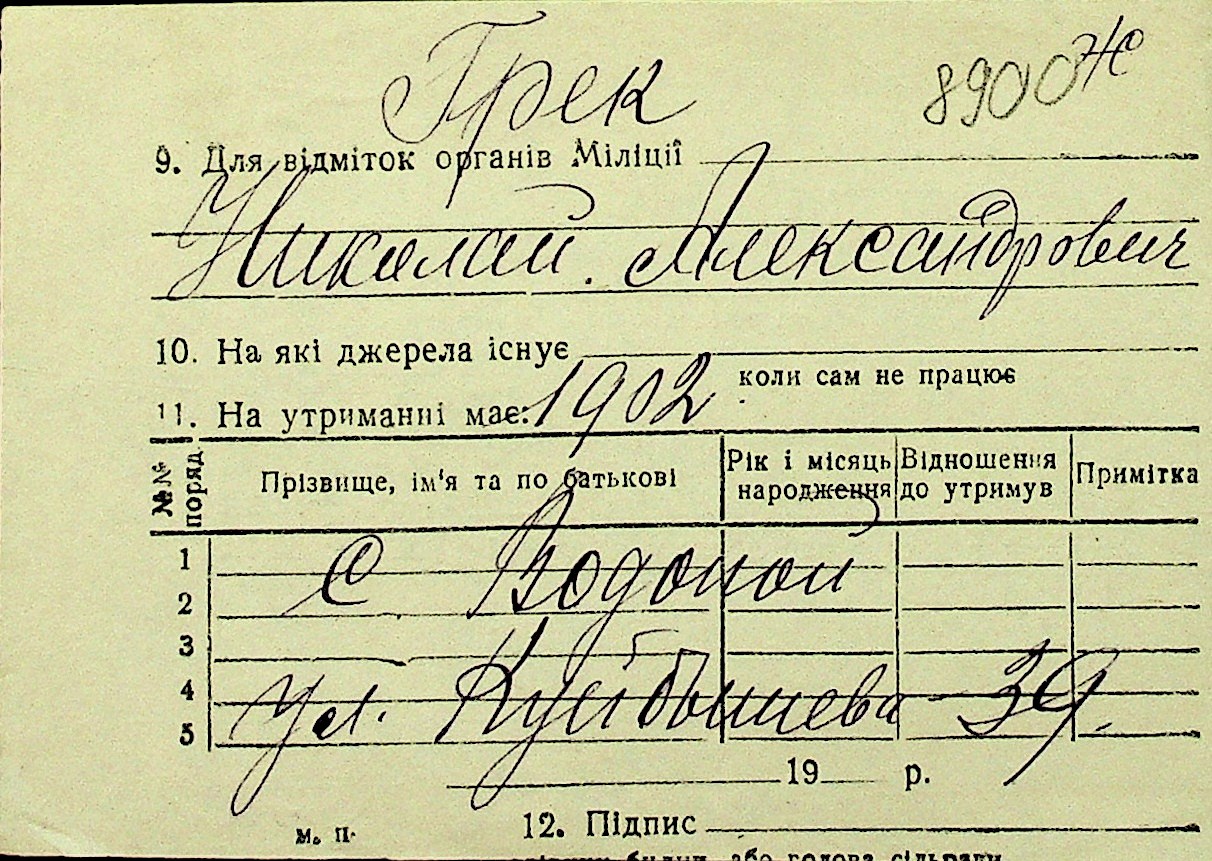 Грек 8900 НС
9. Для відміток органів Міліції
Николай. Александрович
10. На які джерела існує
коли сам не працює
11. На утриманні має: 1902
№№ поряд. Прізвище, ім'я та по батькові Рік і місяць народження Відношення до утримув Примітка
1
с Водопой
2
3
4
ул. Куйбышева 39.
5
19 р.
м. п. 12. Підпис
або голова сільради